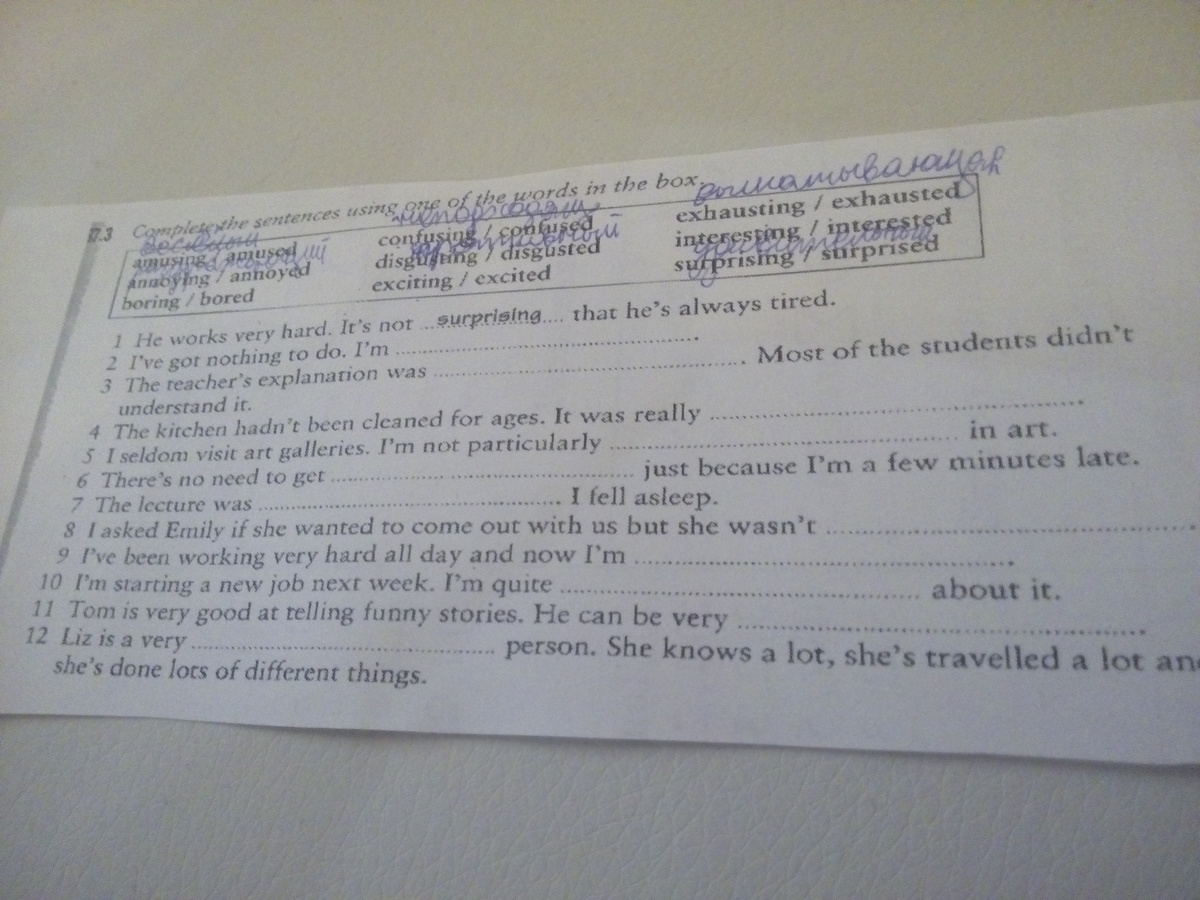 7.3 Complete the sentences using one of the words in the box.
выматывающая
amusing / amused confusing / confused exhausting / exhausted
annoying / annoyed disgusting / disgusted interesting / interested
boring / bored exciting / excited surprising / surprised
1 He works very hard. It's not surprising that he's always tired.
2 I've got nothing to do. I'm ........
3 The teacher's explanation was ........ . Most of the students didn't
understand it.
4 The kitchen hadn't been cleaned for ages. It was really ........
5 I seldom visit art galleries. I'm not particularly ........ in art.
6 There's no need to get ........ just because I'm a few minutes late.
7 The lecture was ........ . I fell asleep.
8 I asked Emily if she wanted to come out with us but she wasn't ........
9 I've been working very hard all day and now I'm ........
10 I'm starting a new job next week. I'm quite ........ about it.
11 Tom is very good at telling funny stories. He can be very ........
12 Liz is a very ........ person. She knows a lot, she's travelled a lot and
she's done lots of different things.